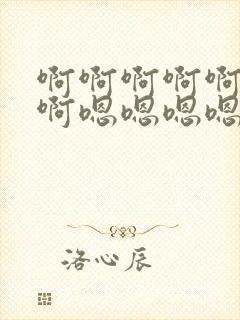 啊啊啊啊啊
啊嗯嗯嗯嗯
洛心辰